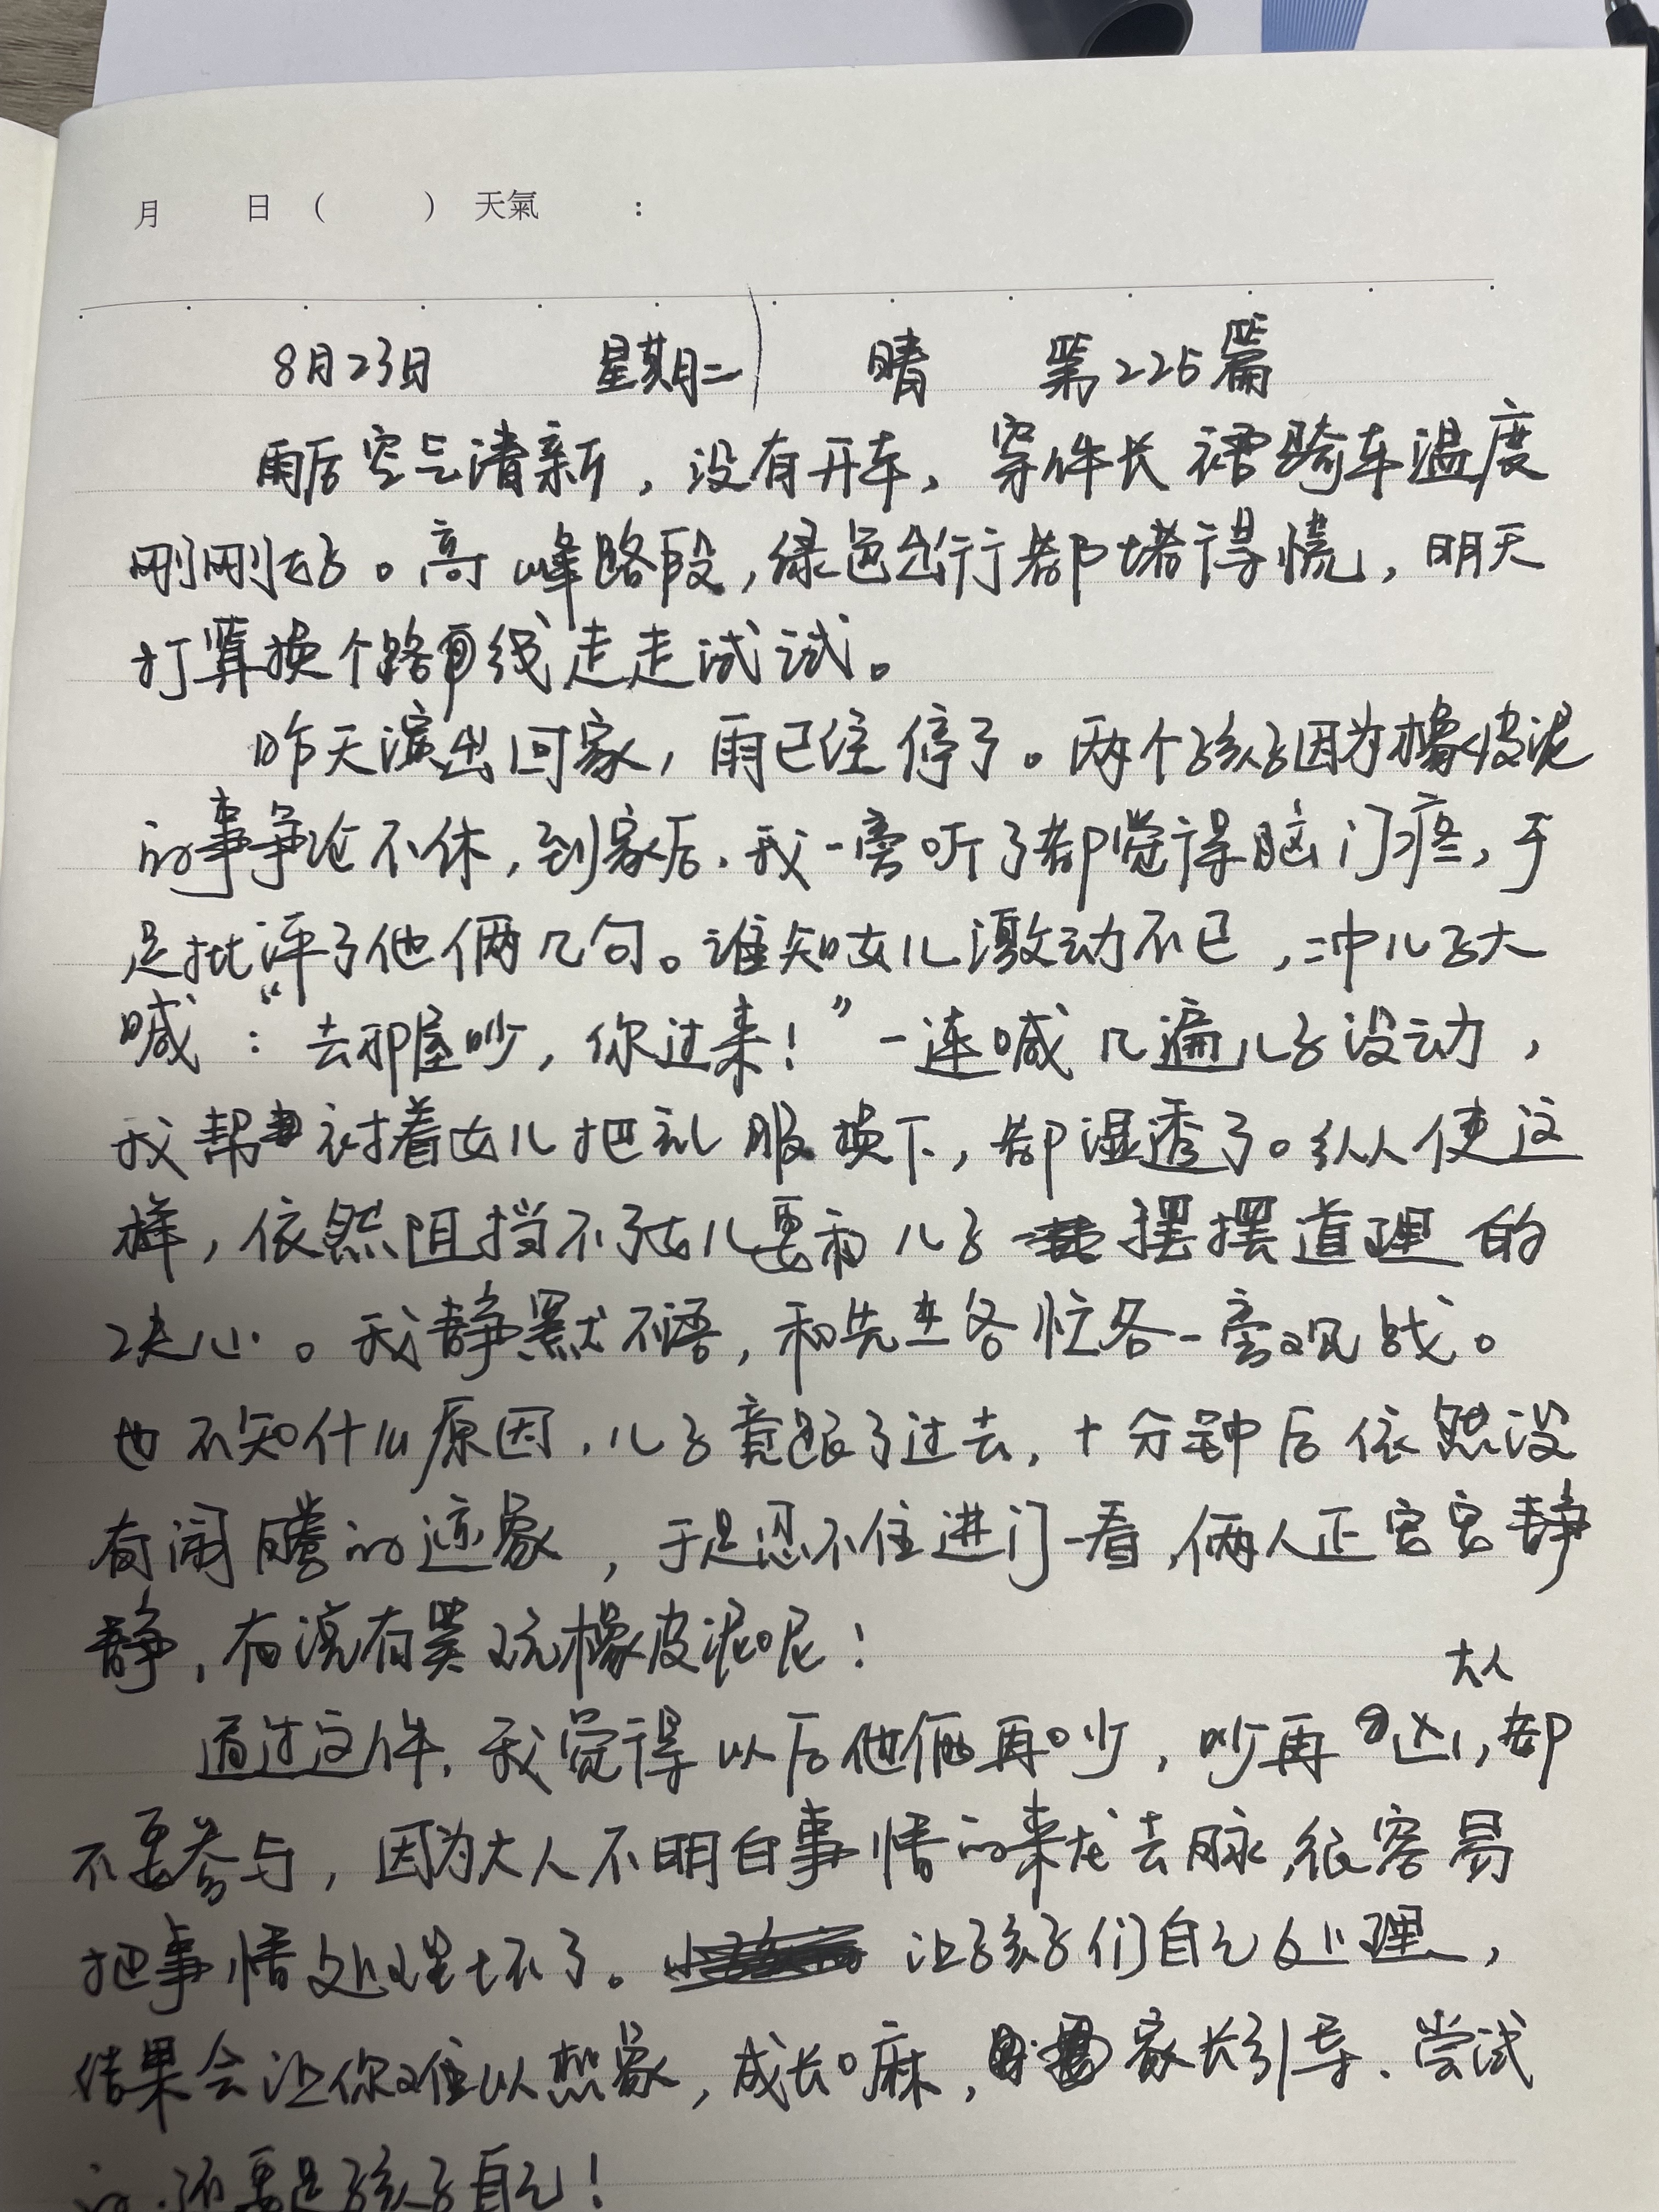 月 日 （ ） 天氣 ：
8月23日 星期二 晴 第225篇
雨后空气清新，没有开车，穿件长裙骑车温度
刚刚好。高峰路段，绿色出行都堵得慌，明天
打算换个路线走走试试。
昨天演出回家，雨已经停了。两个孩子因为橡皮泥
的事争论不休，到家后，我一旁听了都觉得脑门疼，于
是批评了他俩几句。谁知女儿激动不已，冲儿子大
喊：“去那屋吵，你过来！”一连喊几遍儿子没动，
我帮衬着女儿把礼服换下，都湿透了。纵使这
样，依然阻挡不了女儿要和儿子摆摆道理的
决心。我静默不语，和先生各忙各一旁观战。
也不知什么原因，儿子竟跟了过去，十分钟后依然没
有闹腾的迹象，于是忍不住进门一看，俩人正安安静
静，有说有笑玩橡皮泥呢！
大人
通过这件，我觉得以后他俩再吵，吵再凶，都
不要参与，因为大人不明白事情的来龙去脉，很容易
把事情处理坏了。让孩子们自己处理，
结果会让你难以想象，成长嘛，家长引导、尝试
的，还要是孩子自己！